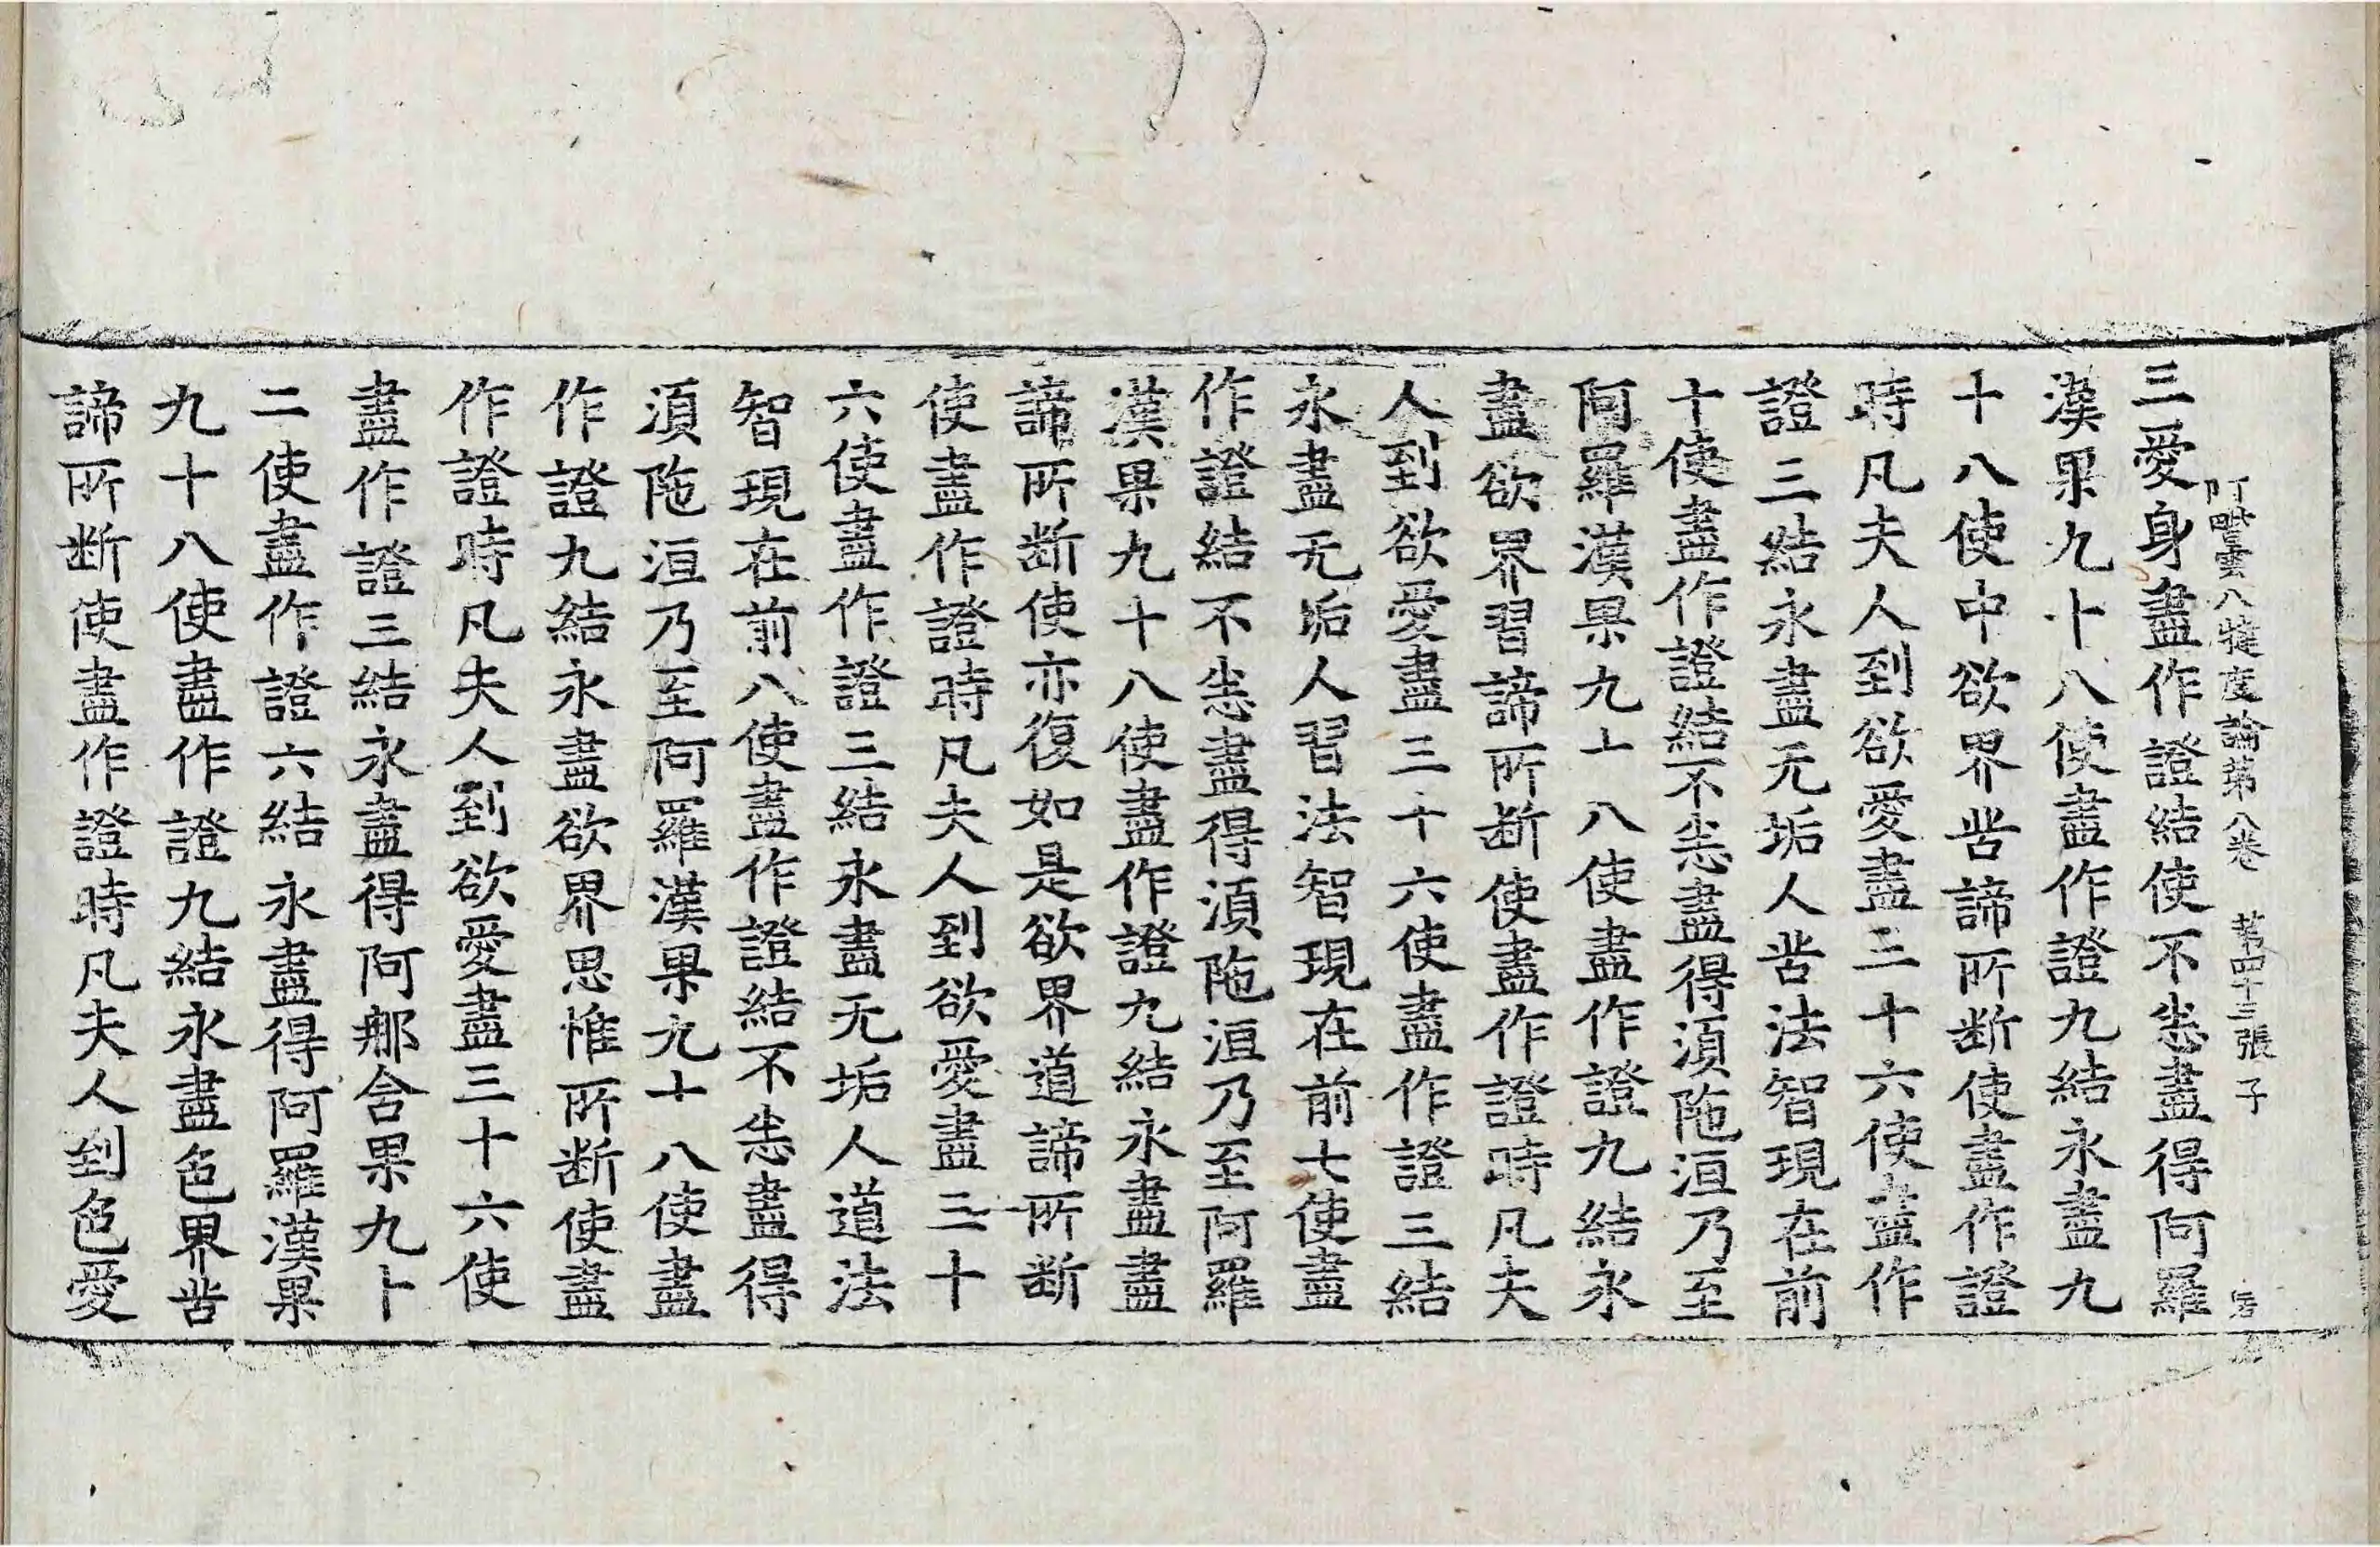 阿毗曇八揵度論第八卷 第四十三張 子
三愛身盡作證結使不恙盡得阿羅
漢果九十八使盡作證九結永盡九
十八使中欲界苦諦所断使盡作證
時凡夫人到欲愛盡三十六使盡作
證三結永盡无垢人苦法智現在前
十使盡作證結不恙盡得湏陁洹乃至
阿羅漢果九十八使盡作證九結永
盡欲界習諦所断使盡作證時凡夫
人到欲愛盡三十六使盡作證三結
永盡无垢人習法智現在前七使盡
作證結不恙盡得湏陁洹乃至阿羅
漢果九十八使盡作證九結永盡盡
諦所断使亦復如是欲界道諦所断
使盡作證時凡夫人到欲愛盡三十
六使盡作證三結永盡无垢人道法
智現在前八使盡作證結不恙盡得
湏陁洹乃至阿羅漢果九十八使盡
作證九結永盡欲界思惟所断使盡
作證時凡夫人到欲愛盡三十六使
盡作證三結永盡得阿那含果九十
二使盡作證六結永盡得阿羅漢果
九十八使盡作證九結永盡色界苦
諦所断使盡作證時凡夫人到色愛